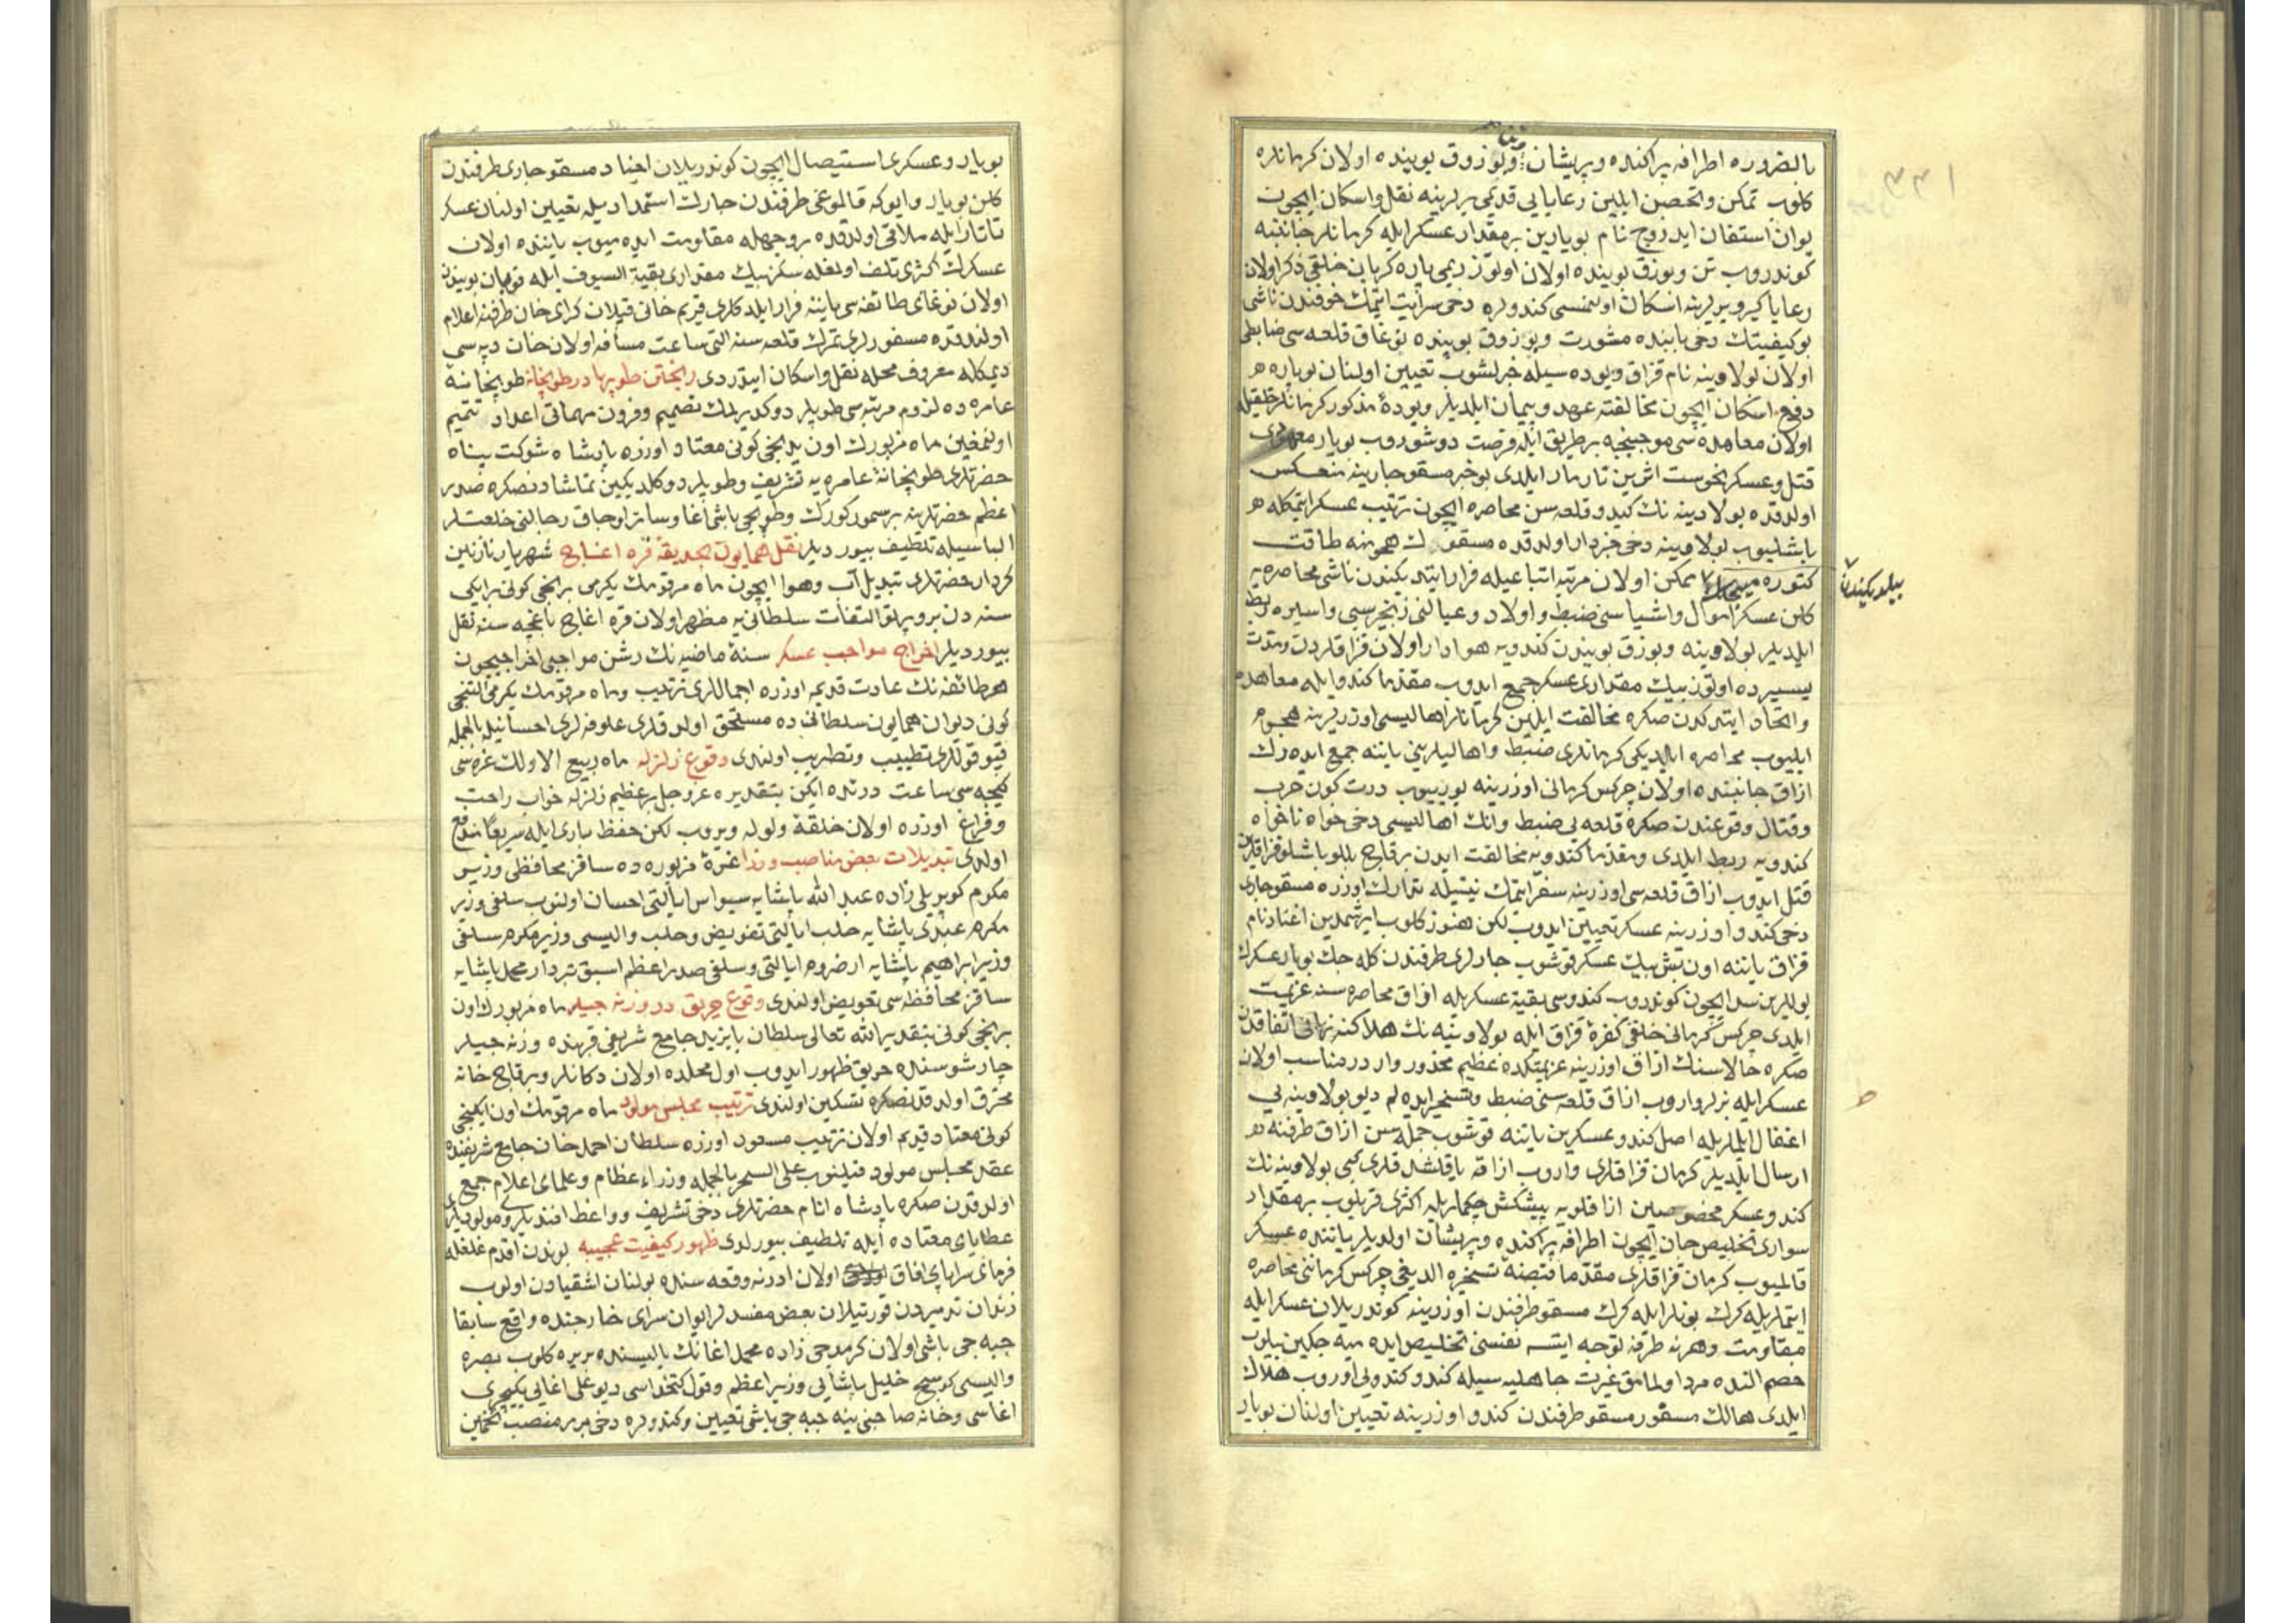 بالضروره اطرافه پراكنده و پريشان و بوزوق بوينده اولان كرمانلره
كلوب تمكن و تحصن ايلين رعايايى قديمى يرلرينه نقل و اسكان ايچون
يوان استفان ايدزوج نام بويارين بر مقدار عسكر ايله كرمانلر جانبنه
كوندروب تن و بوزق بوينده اولان اوتوز يكرمى پاره كرمان خلقى ذكر اولان
رعايا كيرو يرلرينه اسكان اولنمسى كندولره دخى سرايت ايتمك خوفندن ناشى
بو كيفيتك دخى بابنده مشورت و بوزوق بوينده بوغاق قلعه سى ضابطى
اولان بولاوينه نام قزاق ويوده سيله خبرلشوب تعيين اولنان بوياره
دفع اسكان ايچون مخالفته عهد و پيمان ايلديلر ويوده مذكور كرمانلر خلقيله
اولان معاهده سى موجبنجه بر طريق ايله فرصت دوشوروب بويار معهودى
قتل و عسكر نحوست اثرين تارمار ايلدى بو خبر مسقو چارينه منعكس
اولدقده بولاوينه نك كيدو قلعه سن محاصره ايچون ترتيب عسكر ايتمكله
باشليوب بولاوينه دخى خبردار اولدقده مسقونك هجومنه طاقت
كتوره ميه جكن ممكن اولان مرتبه اتباعيله فرار ايتديكندن ناشى محاصره يه
بيلديكندن
كلن عسكر اموال و اشياسنى ضبط و اولاد و عيالنى زنجير سبى و اسيره ربط
ايلديلر بولاوينه و بوزق بويندن كندويه هوادار اولان قزاقلردن مدت
يسيرده اوتوز بيك مقدارى عسكر جمع ايدوب مقدما كندو ايله معاهده
و اتحاد ايتدكدن صكره مخالفت ايلين كرمانلر اهاليسى اوزرلرينه هجوم
ايليوب محاصره ايلديكى كرمانلرى ضبط و اهاليلرينى ياننه جمع ايده رك
ازاق جانبنده اولان چركس كرمانى اوزرينه يوريوب درت كون حرب
و قتال وقوعندن صكره قلعه يى ضبط و انك اهاليسى دخى خواه ناخواه
كندويه ربط ايلدى و مقدما كندويه مخالفت ايدن بر قاچ بللو باشلو قزاقلرى
قتل ايدوب ازاق قلعه سى اوزرينه سفر ايتمك نيتيله تدارك اوزره مسقو چارى
دخى كندو اوزرينه عسكر تعيين ايدوب لكن هنوز كلوب ايرشمدين اغناد نام
قزاق ياننه اون بش بيك عسكر قوشوب چارلرى طرفندن كله جك بويار عسكرك
يوللرين سد ايچون كوندروب كندوسى بقيه عسكريله ازاق محاصره سنه عزيمت
ايلدى چركس كرمانى خلقى كفره قزاق ايله بولاوينه نك هلاكنه نهانى اتفاقدن
صكره حالا سنك ازاق اوزرينه عزيمتكده عظيم محذور وار در مناسب اولان
عسكر ايله بزلر واروب ازاق قلعه سنى ضبط و تسخير ايده لم ديو بولاوينه يى
اغفال ايلملريله اصل كندو عسكرين ياننه قوشوب جمله سن ازاق طرفنه
ارسال ايلديلر كرمان قزاقلرى واروب ازاقه ياقلشدقلرى كبى بولاوينه نك
كندو عسكر مخصوصين ازاقلويه پيشكش چكملريله اكثرى قريلوب بر مقدار
سوارى تخليص جان ايچون اطرافه پراكنده و پريشان اولديلر ياننده عسكر
قالميوب كرمان قزاقلرى مقدما قبضه تسخيره الديغى چركس كرماننى محاصره
ايتملريله كرك بونلر ايله كرك مسقو طرفندن اوزرينه كوندريلان عسكر ايله
مقاومت و هر نه طرفه توجه ايتسه نفسنى تخليص ايده ميه جكين بيلوب
خصم النده مرد اولمامق غيرت جاهليه سيله كندو كندويى اوروب هلاك
ايلدى هالك مسفور مسقو طرفندن كندو اوزرينه تعيين اولنان بويار
بويار و عسكرى استيصال ايچون كوندريلان اغناد مسقو چارى طرفندن
كلن بويار و ايوكه قالموغى طرفندن چارك استمداديله تعيين اولنان عسكر
تاتار ايله ملاقى اولدقده بر وجهله مقاومت ايده ميوب ياننده اولان
عسكرك اكثرى تلف اولمغله سكز بيك مقدارى بقية السيوف ايله قوبان بوينده
اولان نوغاى طائفه سى ياننه فرار ايلدكلرى قريم خانى قپلان كراى خان طرفنه اعلام
اولندقده مسفورلرى تمرك قلعه سنه التى ساعت مسافه اولان خان دپه سى
ديمكله معروف محله نقل و اسكان ايتدردى ريختن طوپها در طوپخانه طوپخانه
عامره ده لزوم مرتبه سى طوپلر دوكدرلمك تصميم و فرون مهماتى اعداد و تتميم
اولنمغين ماه مزبورك اون يدنجى كونى معتاد اوزره پادشاه شوكت پناه
حضرتلرى طوپخانه عامره يه تشريف و طوپلر دوكلديكين تماشادنصكره صدر
اعظم حضرتلرينه بر سمور كورك و طوپجى باشى اغا و سائر اوجاق رجالنى خلعتلر
الباسيله تلطيف بيورديلر نقل همايون بحديقه قره اغاج شهريار نازنين
كردار حضرتلرى تبديل آب و هوا ايچون ماه مرقومك يكرمى برنجى كونى بر ايكى
سنه دن برو پرتو التفات سلطانى يه مظهر اولان قره اغاج باغچه سنه نقل
بيورديلر اخراج مواجب عسكر سنهٔ ماضيه نك رشن مواجبى اخراجيچون
هر طائفه نك عادت قديمه اوزره اجماللرى ترتيب و ماه مرقومك يكرمى التنجى
كونى ديوان همايون سلطانى ده مستحق اولدقلرى علوفه لرى احسانيله بالجمله
قپو قوللرى تطييب و تطريب اولندى وقوع زلزله ماه ربيع الاولك غره سى
كيجه سى ساعت درتده ايكن بتقديره عز و جل بر عظيم زلزله خواب راحت
و فراغ اوزره اولان خلقه ولوله ويروب لكن حفظ بارى ايله سريعا مندفع
اولدى تبديلات بعض مناصب وزرا غرهٔ مزبوره ده ساقز محافظى وزير
مكرم كوپريلى زاده عبد الله پاشايه سيواس ايالتى احسان اولنوب سلفى وزير
مكرم عبدى پاشايه حلب ايالتى تفويض و حلب واليسى وزير مكرم سلفى
وزير ابراهيم پاشايه ارضروم ايالتى و سلفى صدر اعظم اسبق تبردار محمد پاشايه
ساقز محافظه سى تفويض اولندى وقوع حريق در وزنه جيلر ماه مزبورك اون
برنجى كونى بتقدير الله تعالى سلطان بايزيد جامع شريفى قربنده وزنه جيلر
چارشوسنده حريق ظهور ايدوب اول محلده اولان دكانلر و بر قاچ خانه
محترق اولدقدنصكره تسكين اولندى ترتيب مجلس مولود ماه مرقومك اون ايكنجى
كونى معتاد قديم اولان ترتيب مسعود اوزره سلطان احمد خان جامع شريفنده
عقد مجلس مولود قيلنوب على السحر بالجمله وزراء عظام و علماى اعلام جمع
اولدقدن صكره پادشاه انام حضرتلرى دخى تشريف و واعظ افنديلر و مولوديلرى
عطاياى معتاده ايله تلطيف بيورلدى ظهور كيفيت عجيبه بوندن اقدم غلغله
فرماى سراپاى افاق اولان ادرنه وقعه سنده بولنان اشقيادن اولوب
زندان تدميردن قورتيلان بعض مفسدلر ايوان سراى خارجنده واقع سابقا
جبه جى باشى اولان كرمدجى زاده محمد اغانك ياليسنده بر يره كلوب بصره
واليسى كوسج خليل پاشايى وزير اعظم و قول كتخداسى ديو على اغايى يكيچرى
اغاسى و خانه صاحبنى ينه جبه جى باشى تعيين و كندولره دخى برر منصب تخمين